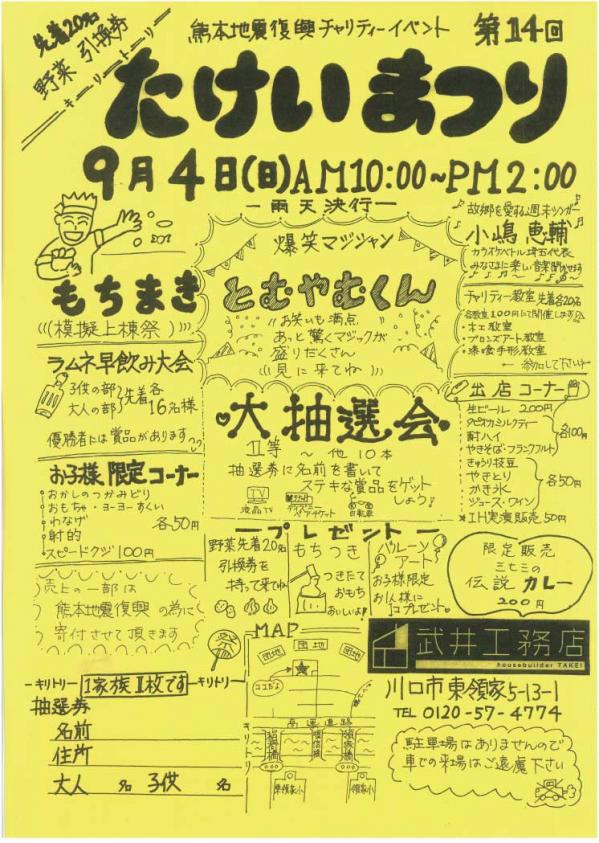 先着20名
野菜 引換券
キリトリ
熊本地震復興チャリティーイベント 第14回
たけいまつり
9月4日(日)AM10:00~PM2:00
ー雨天決行ー
もちまき
(((模擬上棟祭)))
爆笑マジシャン
とむやむくん
お笑いも満点
あっと驚くマジックが
盛りだくさん
見に来てね
故郷を愛する週末シンガー
小嶋 恵輔
カラオケバトル埼玉代表
みなさまに楽しい音楽聞かせます
チャリティー教室 先着各20名
各教室100円にて開催します
・木工教室
・ブロンズアート教室
・漆喰手形教室
参加して下さい
ラムネ早飲み大会
子供の部
大人の部
先着各16名様
優勝者には賞品があります
大抽選会
Ⅱ等 ~ 他10本
抽選券に名前を書いて
ステキな賞品をゲットしよう!
TV
液晶TV
ペアチケット
自転車
出店コーナー
生ビール 200円
タピオカミルクティー
酎ハイ
やきそば・フランクフルト
各100円
きゅうり枝豆
やきとり
かき氷
ジュース・ワイン
各50円
IH実演販売 50円
お子様限定コーナー
おかしのつかみどり
おもちゃ・ヨーヨーすくい
わなげ
射的
各50円
スピードクジ 100円
ープレゼントー
野菜先着20名
引換券を
持って来てね
もちつき
つきたて
おもち
おいしいよ!
バルーン
アート
お子様限定
お1人様に
1コプレゼント
限定販売
三七三の
伝説カレー
200円
売上の一部は
熊本地震復興の為に
寄付させて頂きます
祭
MAP
団地
団地
団地
ココだよ
高速道路
東領家小
領家小
武井工務店
housebuilder TAKEI
川口市東領家5-13-1
TEL 0120-57-4774
駐車場はありませんので
車での来場はご遠慮下さい
ーキリトリー 1家族Ⅱ枚です ーキリトリー
抽選券
名前
住所
大人 名 子供 名